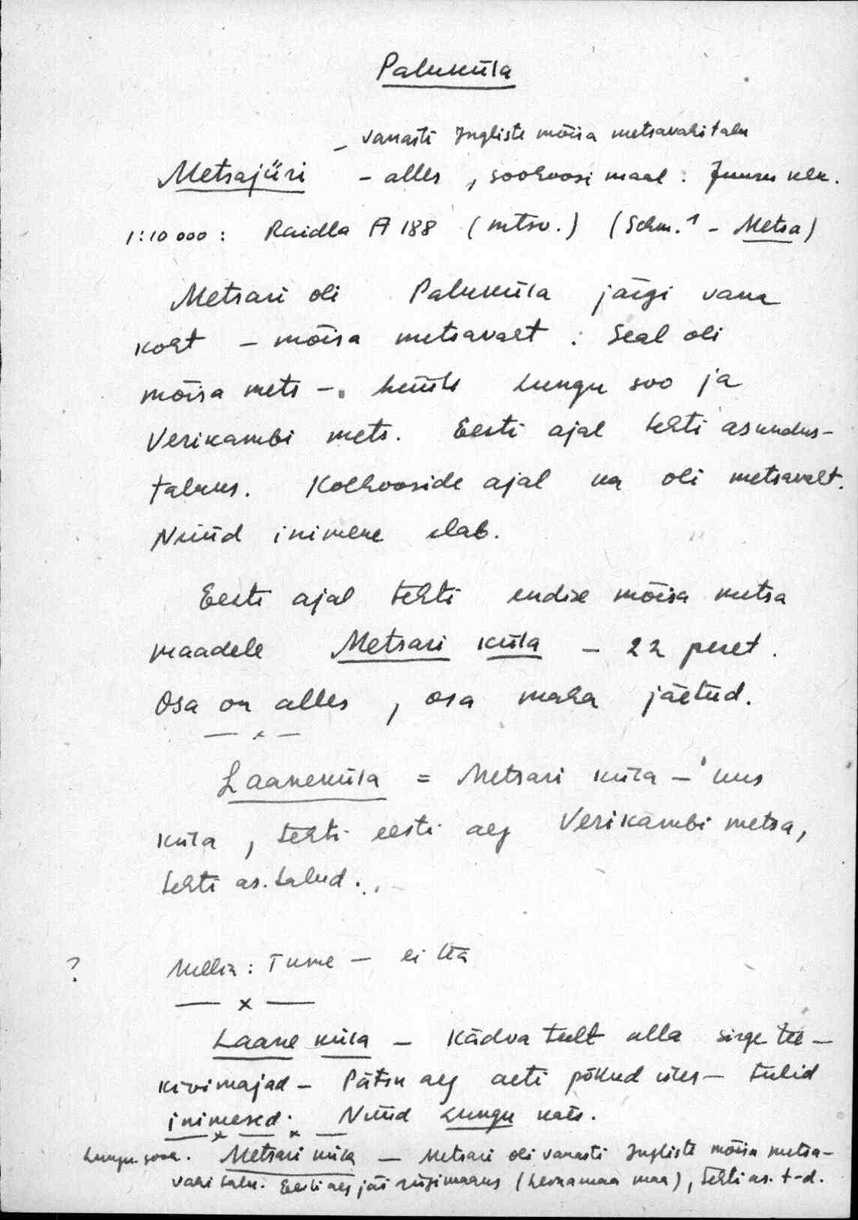 Paluküla
– vanasti Ingliste mõisa metsavahitalu
Metsajüri – alles, sovhoosi maal: Juuru
1:10 000: Raidla A 188 (mtsv.) (Schm.¹ – Metsa)
Metsari oli Paluküla järgi vana
koht – mõisa metsavaht. Seal oli
mõisa mets – Lungu soo ja
Verikambi mets. Eesti ajal tehti asundus-
talus. Kolhooside ajal ka oli metsavaht.
Nüüd inimene elab.
Eesti ajal tehti endise mõisa metsa
maadele Metsari küla – 22 peret.
Osa on alles, osa maha jäetud.
— x —
Laaneküla = Metsari küla – uus
küla, tehti eesti aeg Verikambi metsa,
tehti as. talud.
? : Tume – ei tea
— x —
Laane küla – Kädva teelt alla sirge tee –
kivimajad – Pätsu aeg aeti põllud üles – tulid
inimesed. Nüüd Lungu
— x — x —
Lungu. Metsari küla – Metsari oli vanasti Ingliste mõisa metsa-
vahi talu. Eesti aeg jäi riigimaaks (maa), tehti as. t-d.